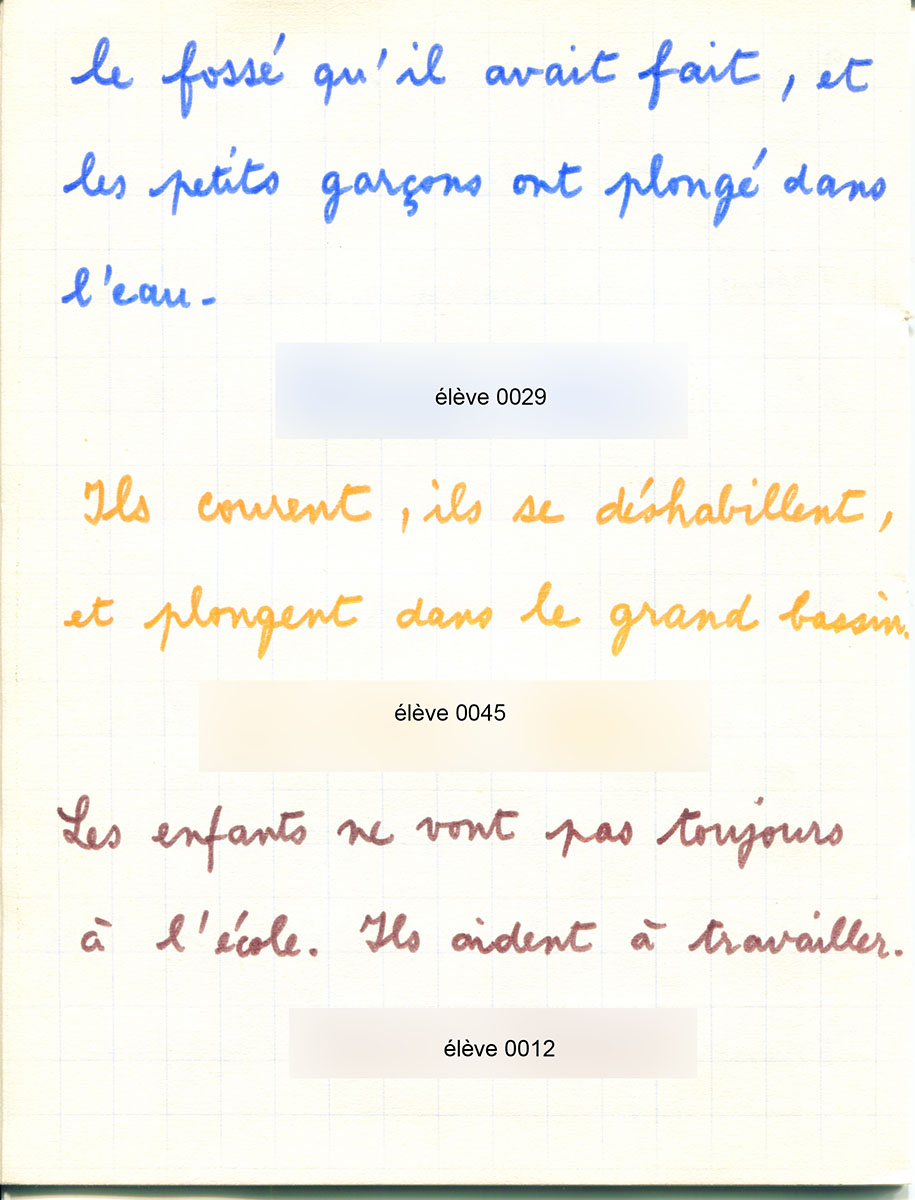 le fossé qu'il avait fait, et
les petits garçons ont plongé dans
l'eau.
élève 0029
Ils courent, ils se déshabillent,
et plongent dans le grand bassin.
élève 0045
Les enfants ne vont pas toujours
à l'école. Ils aident à travailler.
élève 0012